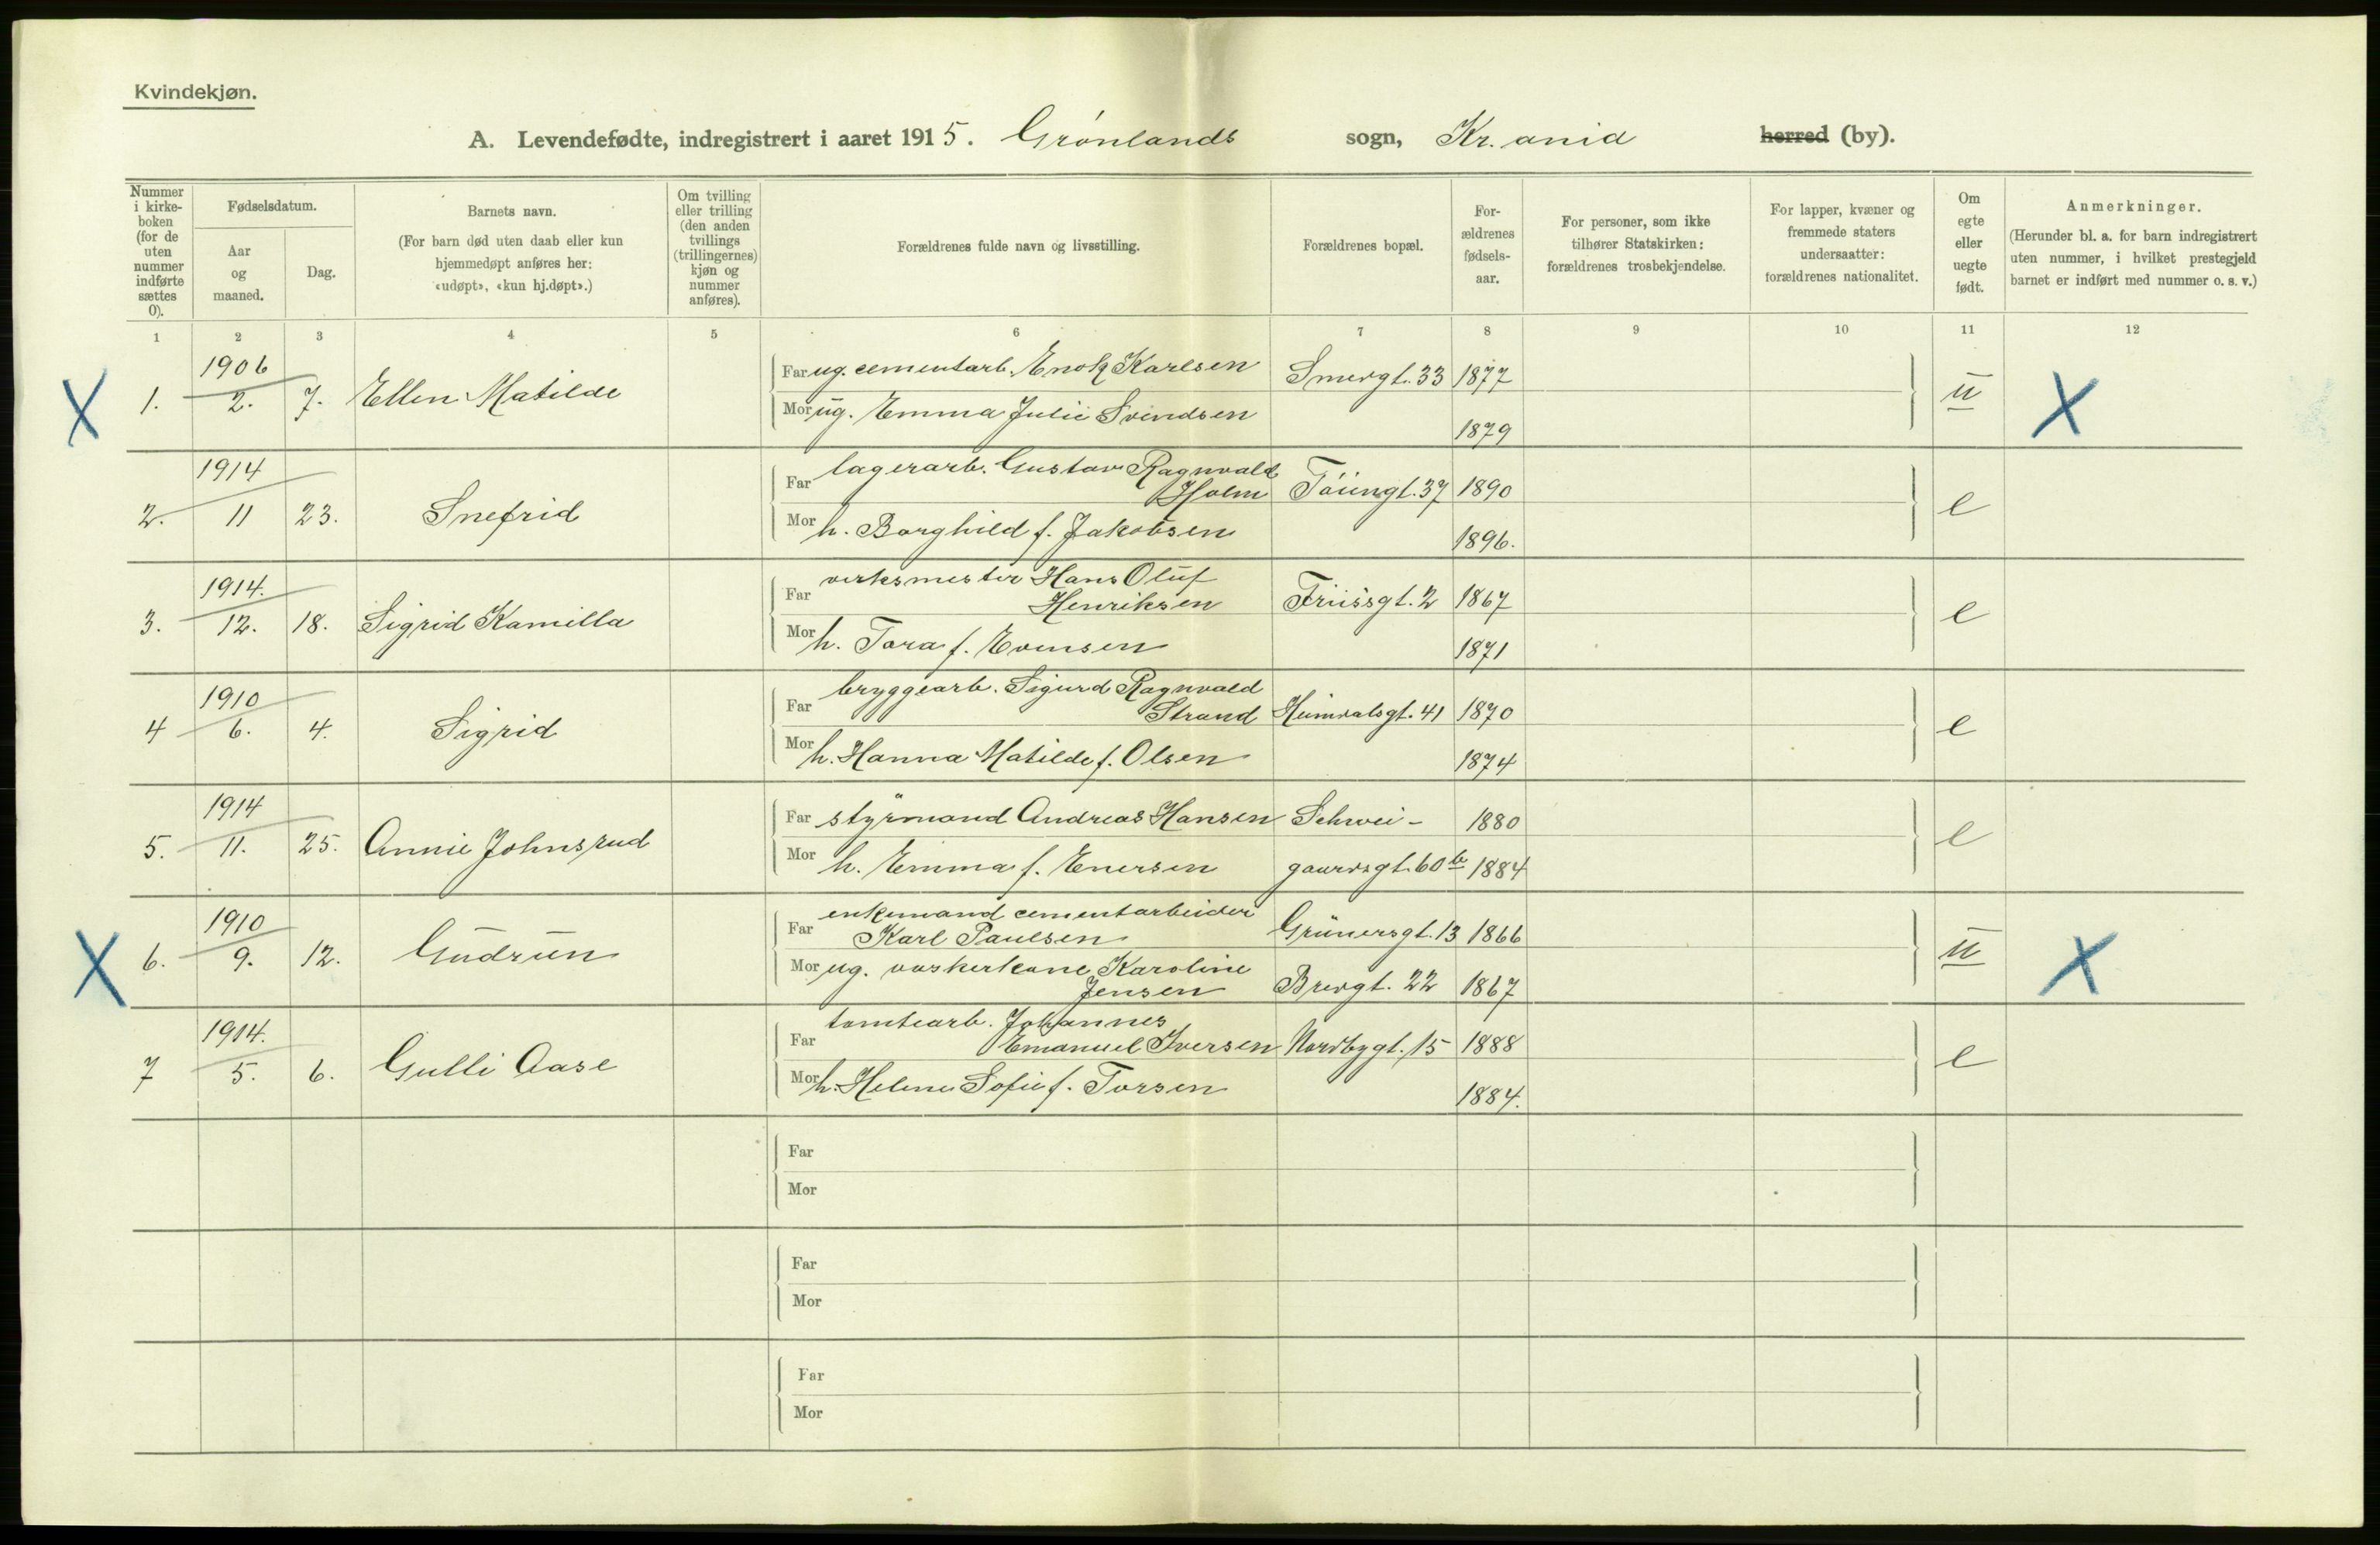 Kvindekjøn.
A. Levendefødte, indregistrert i aaret 1915. Grønlands sogn, Kr.ania herred (by).
Nummer i kirke-boken (for de uten nummer indførte sættes 0).
Fødselsdatum.
Aar og maaned.
Dag.
Barnets navn.
(For barn død uten daab eller kun hjemmedøpt anføres her: «udøpt», «kun hj.døpt».)
Om tvilling eller trilling (den anden tvillings (trillingernes) kjøn og nummer anføres).
Forældrenes fulde navn og livsstilling.
Forældrenes bopæl.
For-ældrenes fødsels-aar.
For personer, som ikke tilhører Statskirken: forældrenes trosbekjendelse.
For lapper, kvæner og fremmede staters undersaatter: forældrenes nationalitet.
Om egte eller uegte født.
Anmerkninger.
(Herunder bl. a. for barn indregistrert uten nummer, i hvilket prestegjeld barnet er indført med nummer o. s. v.)
1 2 3 4 5 6 7 8 9 10 11 12
X 1. 1906 2. 7. Ellen Matilde
Far ug. cementarb. Enok Karlsen Smedgt. 33 1877  u X
Mor ug. Emma Julie Svendsen 1879
2. 1914 11 23. Snefrid
Far lagerarb. Gustav Ragnvald
Holm Tøiengt. 37 1890 e
Mor h. Borghild f. Jakobsen 1896.
3. 1914. 12. 18. Sigrid Kamilla
Far verksmester Hans Oluf
Henriksen Friisgt. 2 1867 e
Mor h. Tora f. Evensen 1871
4 1910 6. 4. Sigrid
Far bryggearb. Sigurd Ragnvald
Strand Heimdalsgt. 41 1870 e
Mor h. Hanna Matilde f. Olsen 1874
5. 1914 11. 25. Annie Johnsrud
Far styrmand Andreas Hansen Schwei- 1880 e
Mor h. Emma f. Enersen gaardsgt. 60 b 1884
X 6. 1910 9. 12. Gudrun
Far enkemand cementarbeider
Karl Paulsen Grünersgt. 13 1866 u X
Mor ug. vaskerkone Karoline
Jensen Bredgt. 22 1867
7 1914. 5. 6. Gulli Aase
Far tomtearb. Johannes
Emanuel Iversen Nordbygt. 15 1888 e
Mor h. Helene Sofie f. Torsen 1884.
Far
Mor
Far
Mor
Far
Mor